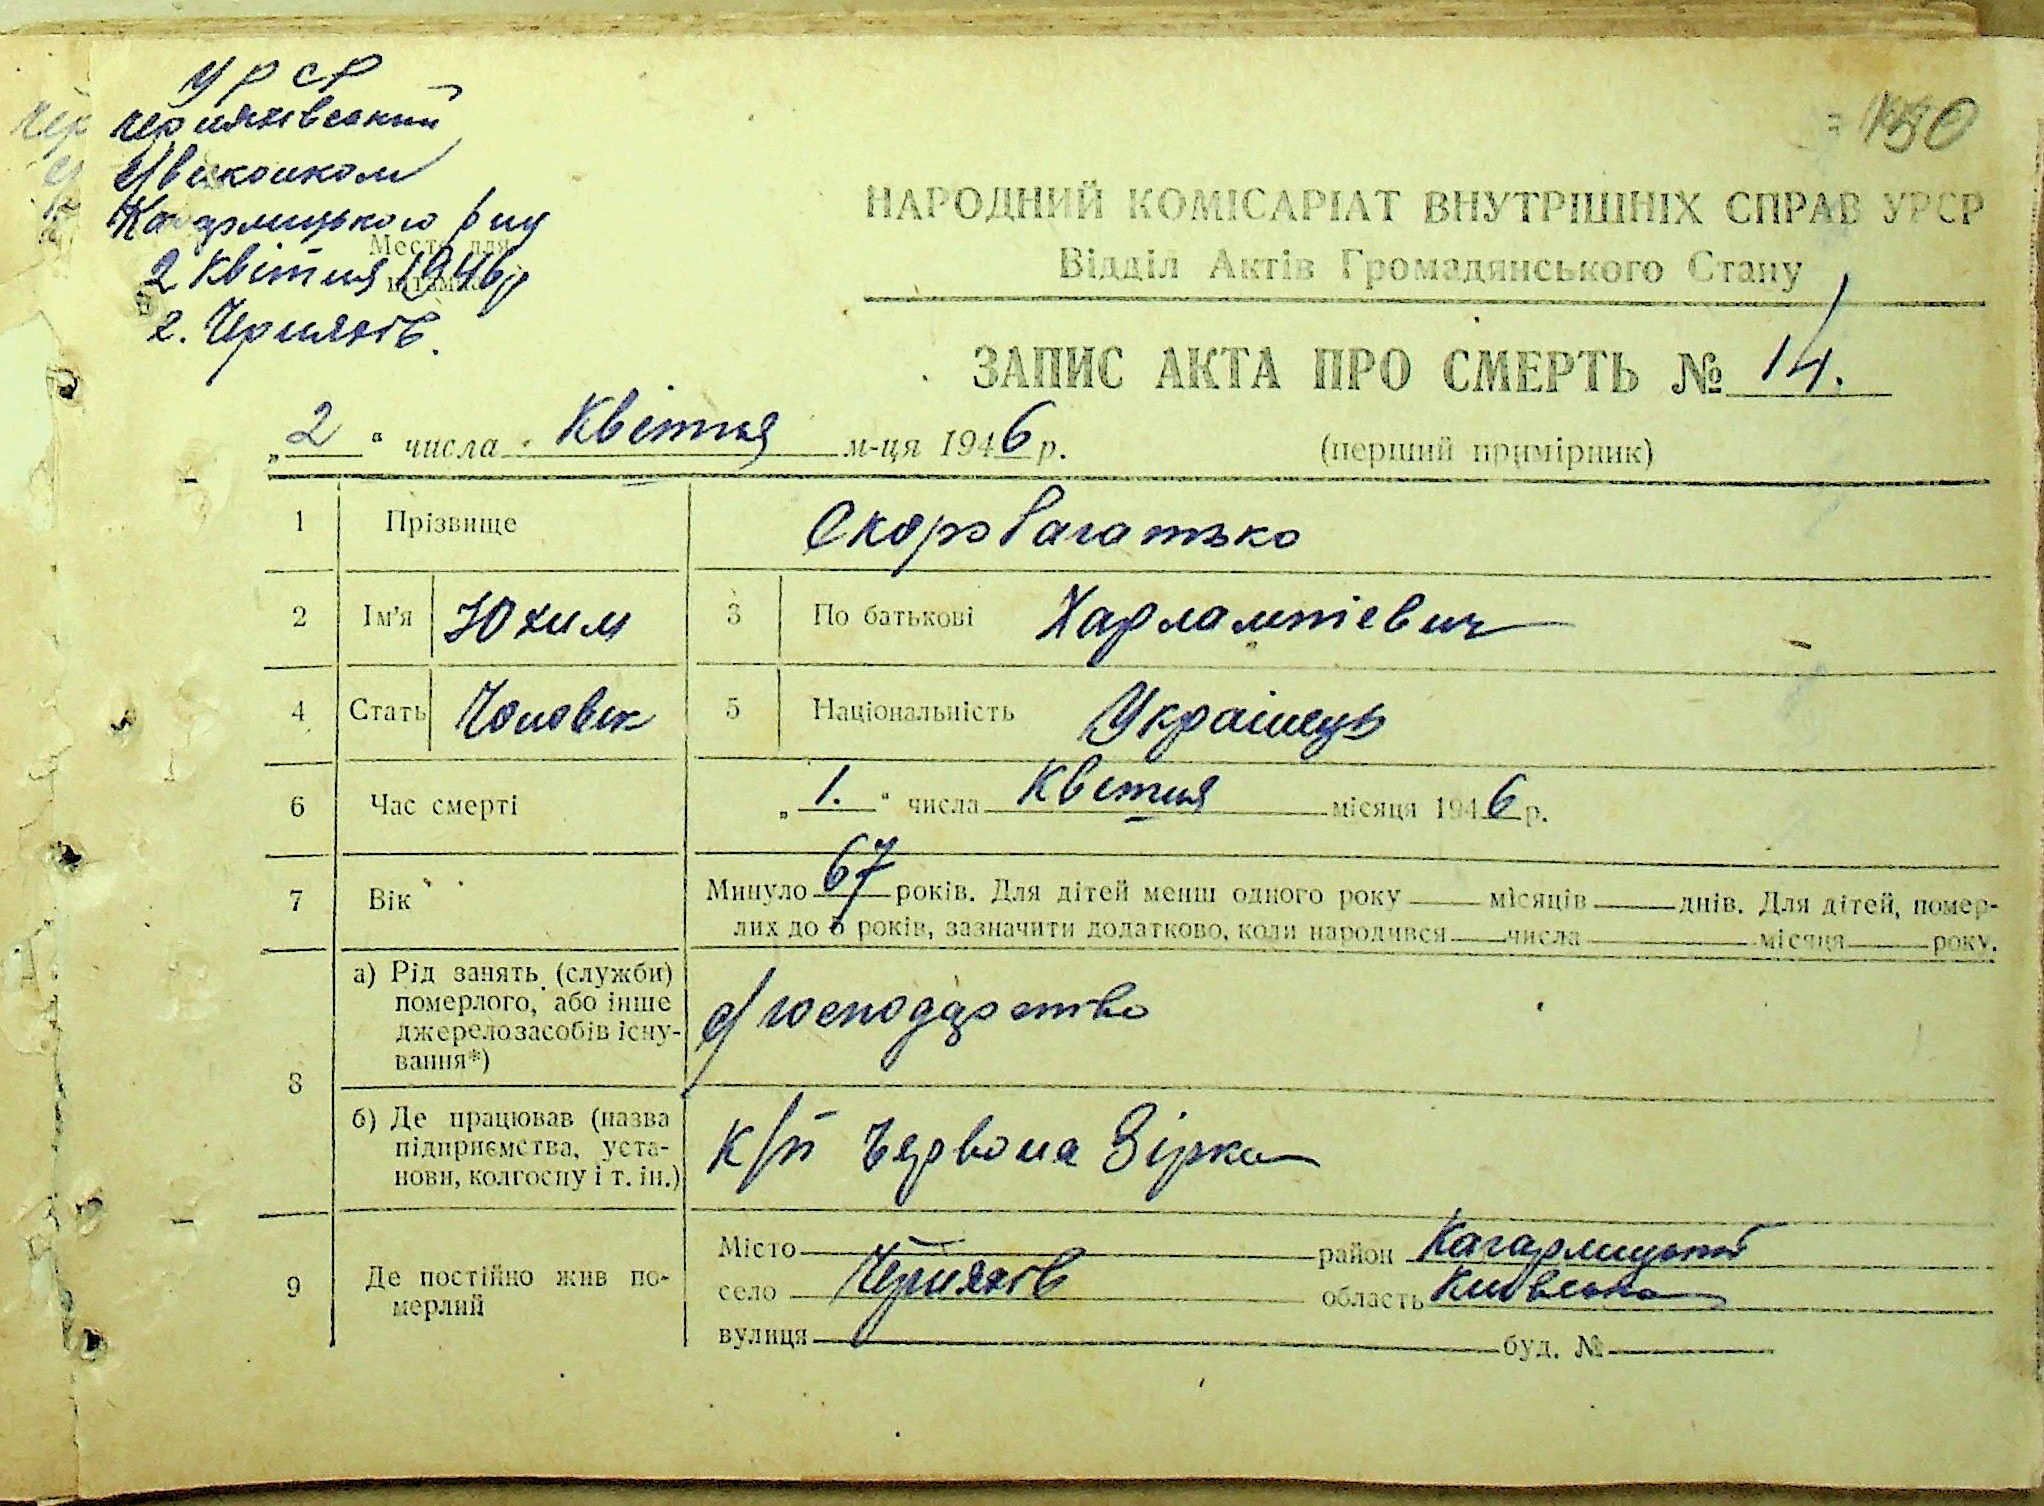 УРСР
Черняхівський
с/виконком
Кагарлицького р-ну
Место для
штампа
2 Квітня 1946р
с. Черняхів.
НАРОДНИЙ КОМІСАРІАТ ВНУТРІШНІХ СПРАВ УРСР
Відділ Актів Громадянського Стану
ЗАПИС АКТА ПРО СМЕРТЬ № 14.
„2“ числа Квітня м-ця 1946 р.
(перший примірник)
1 Прізвище Скоробагатько
2 Ім'я Юхим 3 По батькові Харлампієвич
4 Стать Чоловік 5 Національність Українець
6 Час смерті „1.“ числа Квітня місяця 1946 р.
7 Вік Минуло 67 років. Для дітей менш одного року місяців днів. Для дітей, помер-
лих до 5 років, зазначити додатково, коли народився числа місяця року.
8 а) Рід занять (служби)
померлого, або інше
джерело засобів існу-
вання*)
с/господарство
б) Де працював (назва
підприємства, уста-
нови, колгоспу і т. ін.)
к/п Червона Зірка
9 Де постійно жив по-
мерлий
Місто район Кагарлицький
село Черняхів область Київська
вулиця буд. №